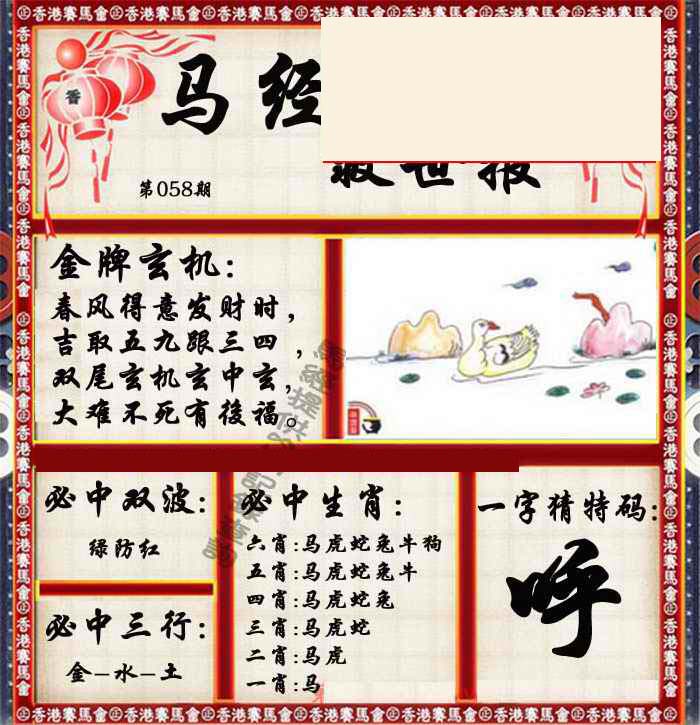 马经
救世报
第058期
金牌玄机:
春风得意发财时,
吉取五九跟三四,
双尾玄机玄中玄,
大难不死有後福。
必中双波:
绿防红
必中三行:
金-水-土
必中生肖:
六肖:马虎蛇兔牛狗
五肖:马虎蛇兔牛
四肖:马虎蛇兔
三肖:马虎蛇
二肖:马虎
一肖:马
一字猜特码:
呼
香港賽馬會